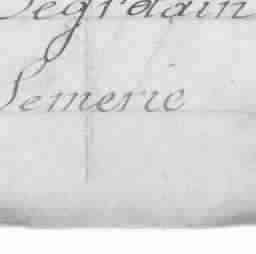 Degrdain
Lemeric